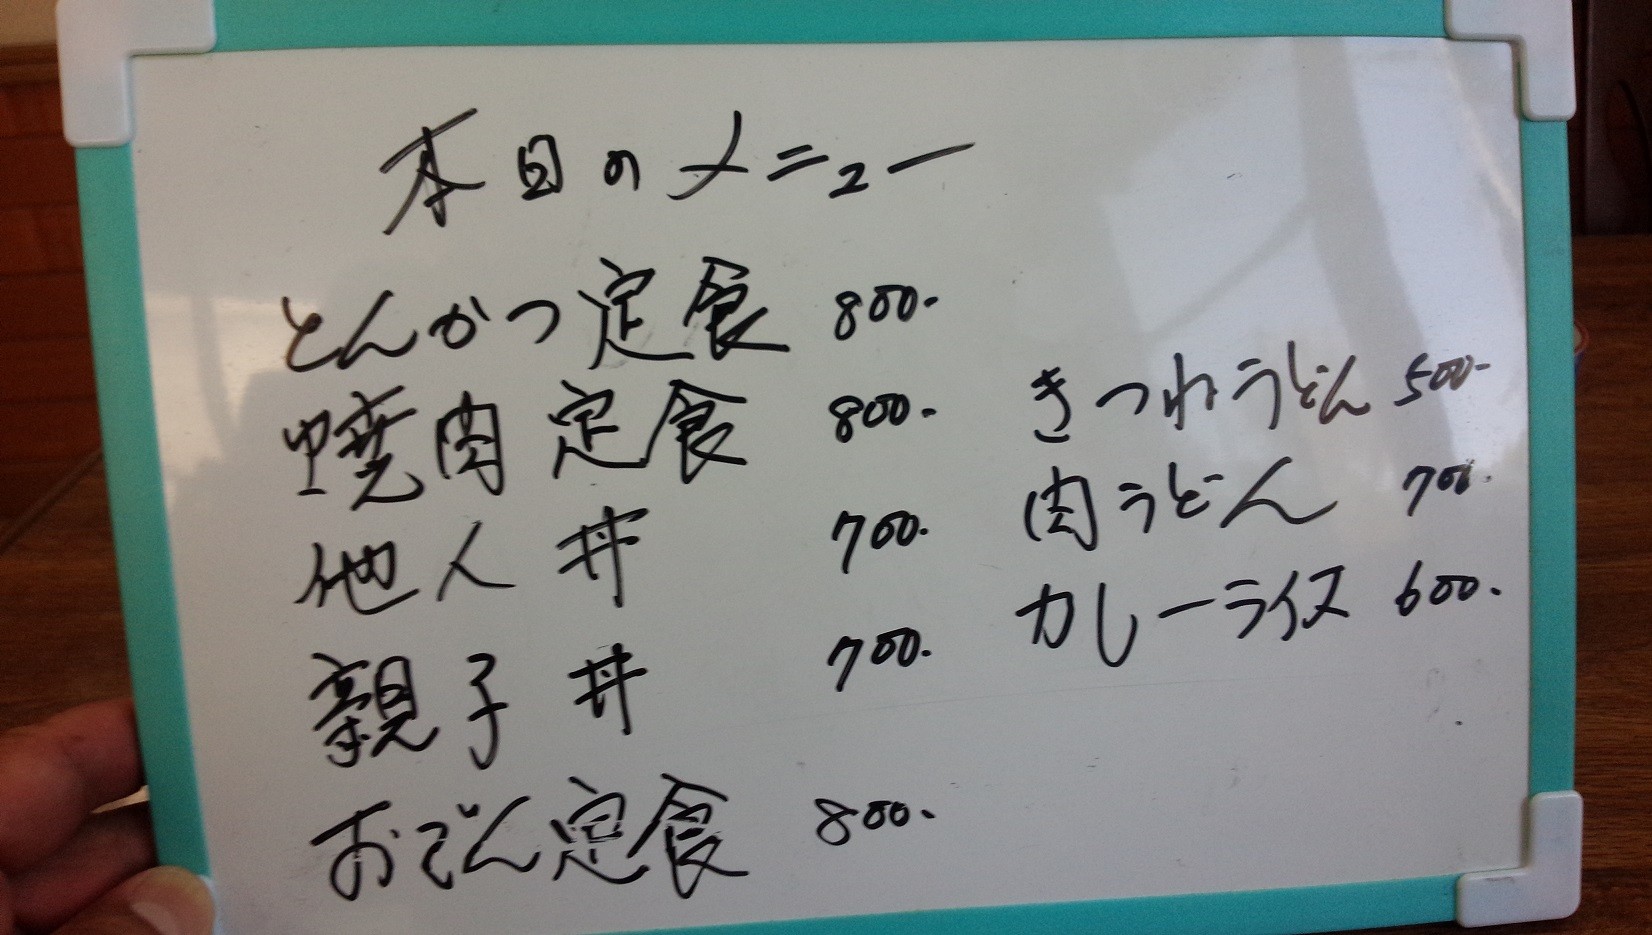 本日のメニュー
とんかつ定食 800.
焼肉定食 800.
他人丼 700.
親子丼 700.
おでん定食 800.
きつねうどん 500-
肉うどん 700.
カレーライス 600.